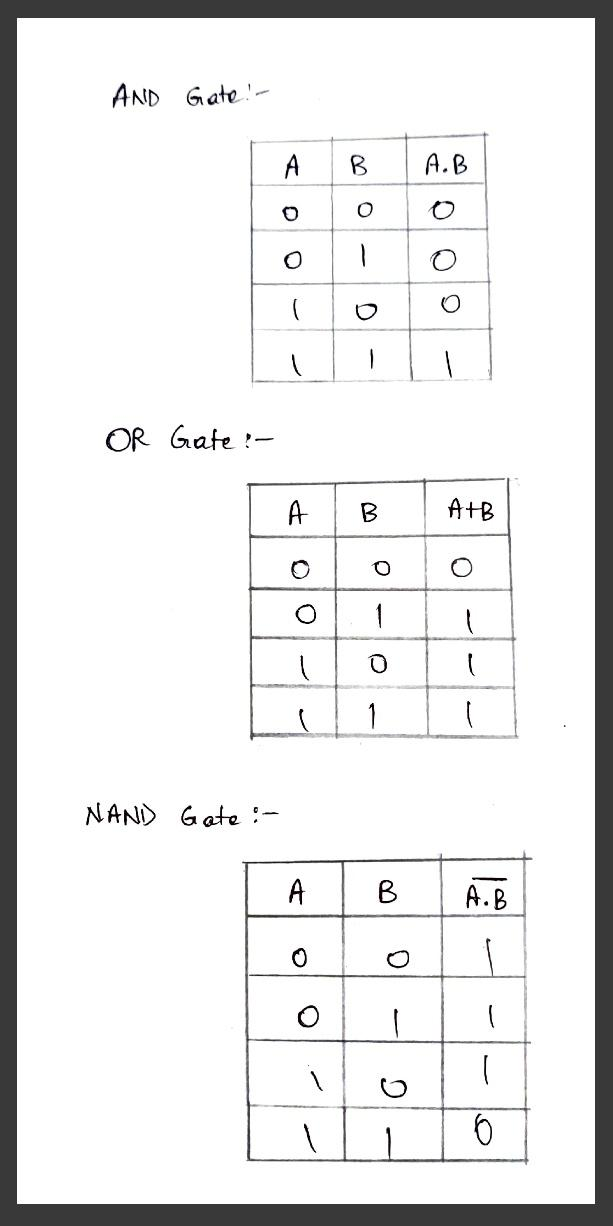 AND Gate:-
A B A.B
0 0 0
0 1 0
1 0 0
1 1 1
OR Gate:-
A B A+B
0 0 0
0 1 1
1 0 1
1 1 1
NAND Gate:-
A B A̅.̅B̅
0 0 1
0 1 1
1 0 1
1 1 0